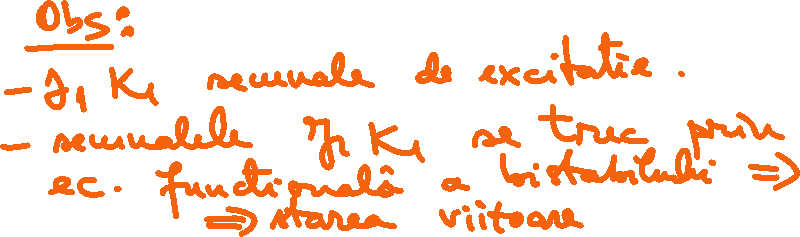 Obs:
- J₁ K₁ semnale de excitatie.
- semnalele J₁ K₁ se trec prin
ec. funcțională a bistabilului ⇒
⇒ starea viitoare